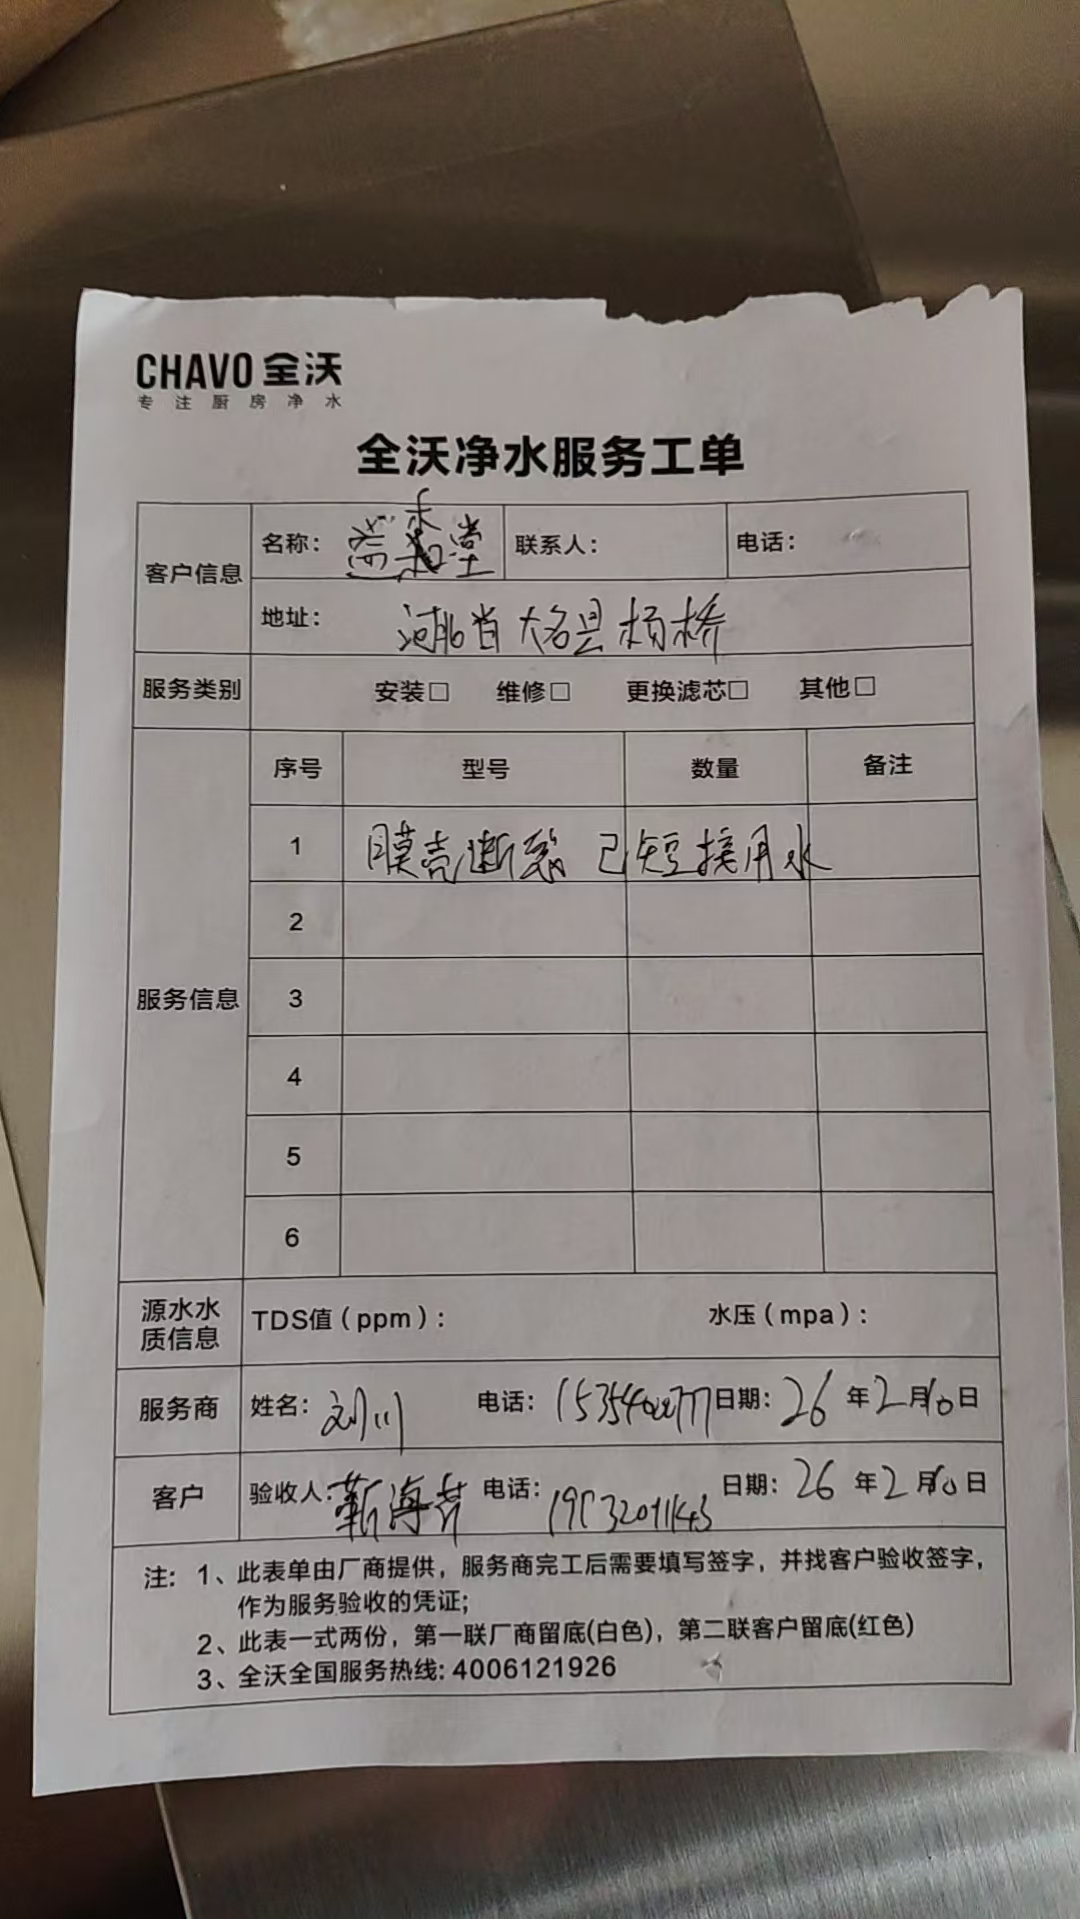 CHAVO 全沃
专注厨房净水
全沃净水服务工单
客户信息 名称： 益禾堂 联系人： 电话：
地址： 河北省大名县杨桥
服务类别 安装□ 维修□ 更换滤芯□ 其他□
服务信息 序号 型号 数量 备注
1 膜壳断裂 已短接用水
2
3
4
5
6
源水水质信息 TDS值（ppm）： 水压（mpa）：
服务商 姓名： 刘川 电话： 日期： 26 年 2 月 10 日
客户 验收人： 靳海 电话： 日期： 26 年 2 月 10 日
注： 1、此表单由厂商提供，服务商完工后需要填写签字，并找客户验收签字，
作为服务验收的凭证；
2、此表一式两份，第一联厂商留底(白色)，第二联客户留底(红色)
3、全沃全国服务热线：4006121926